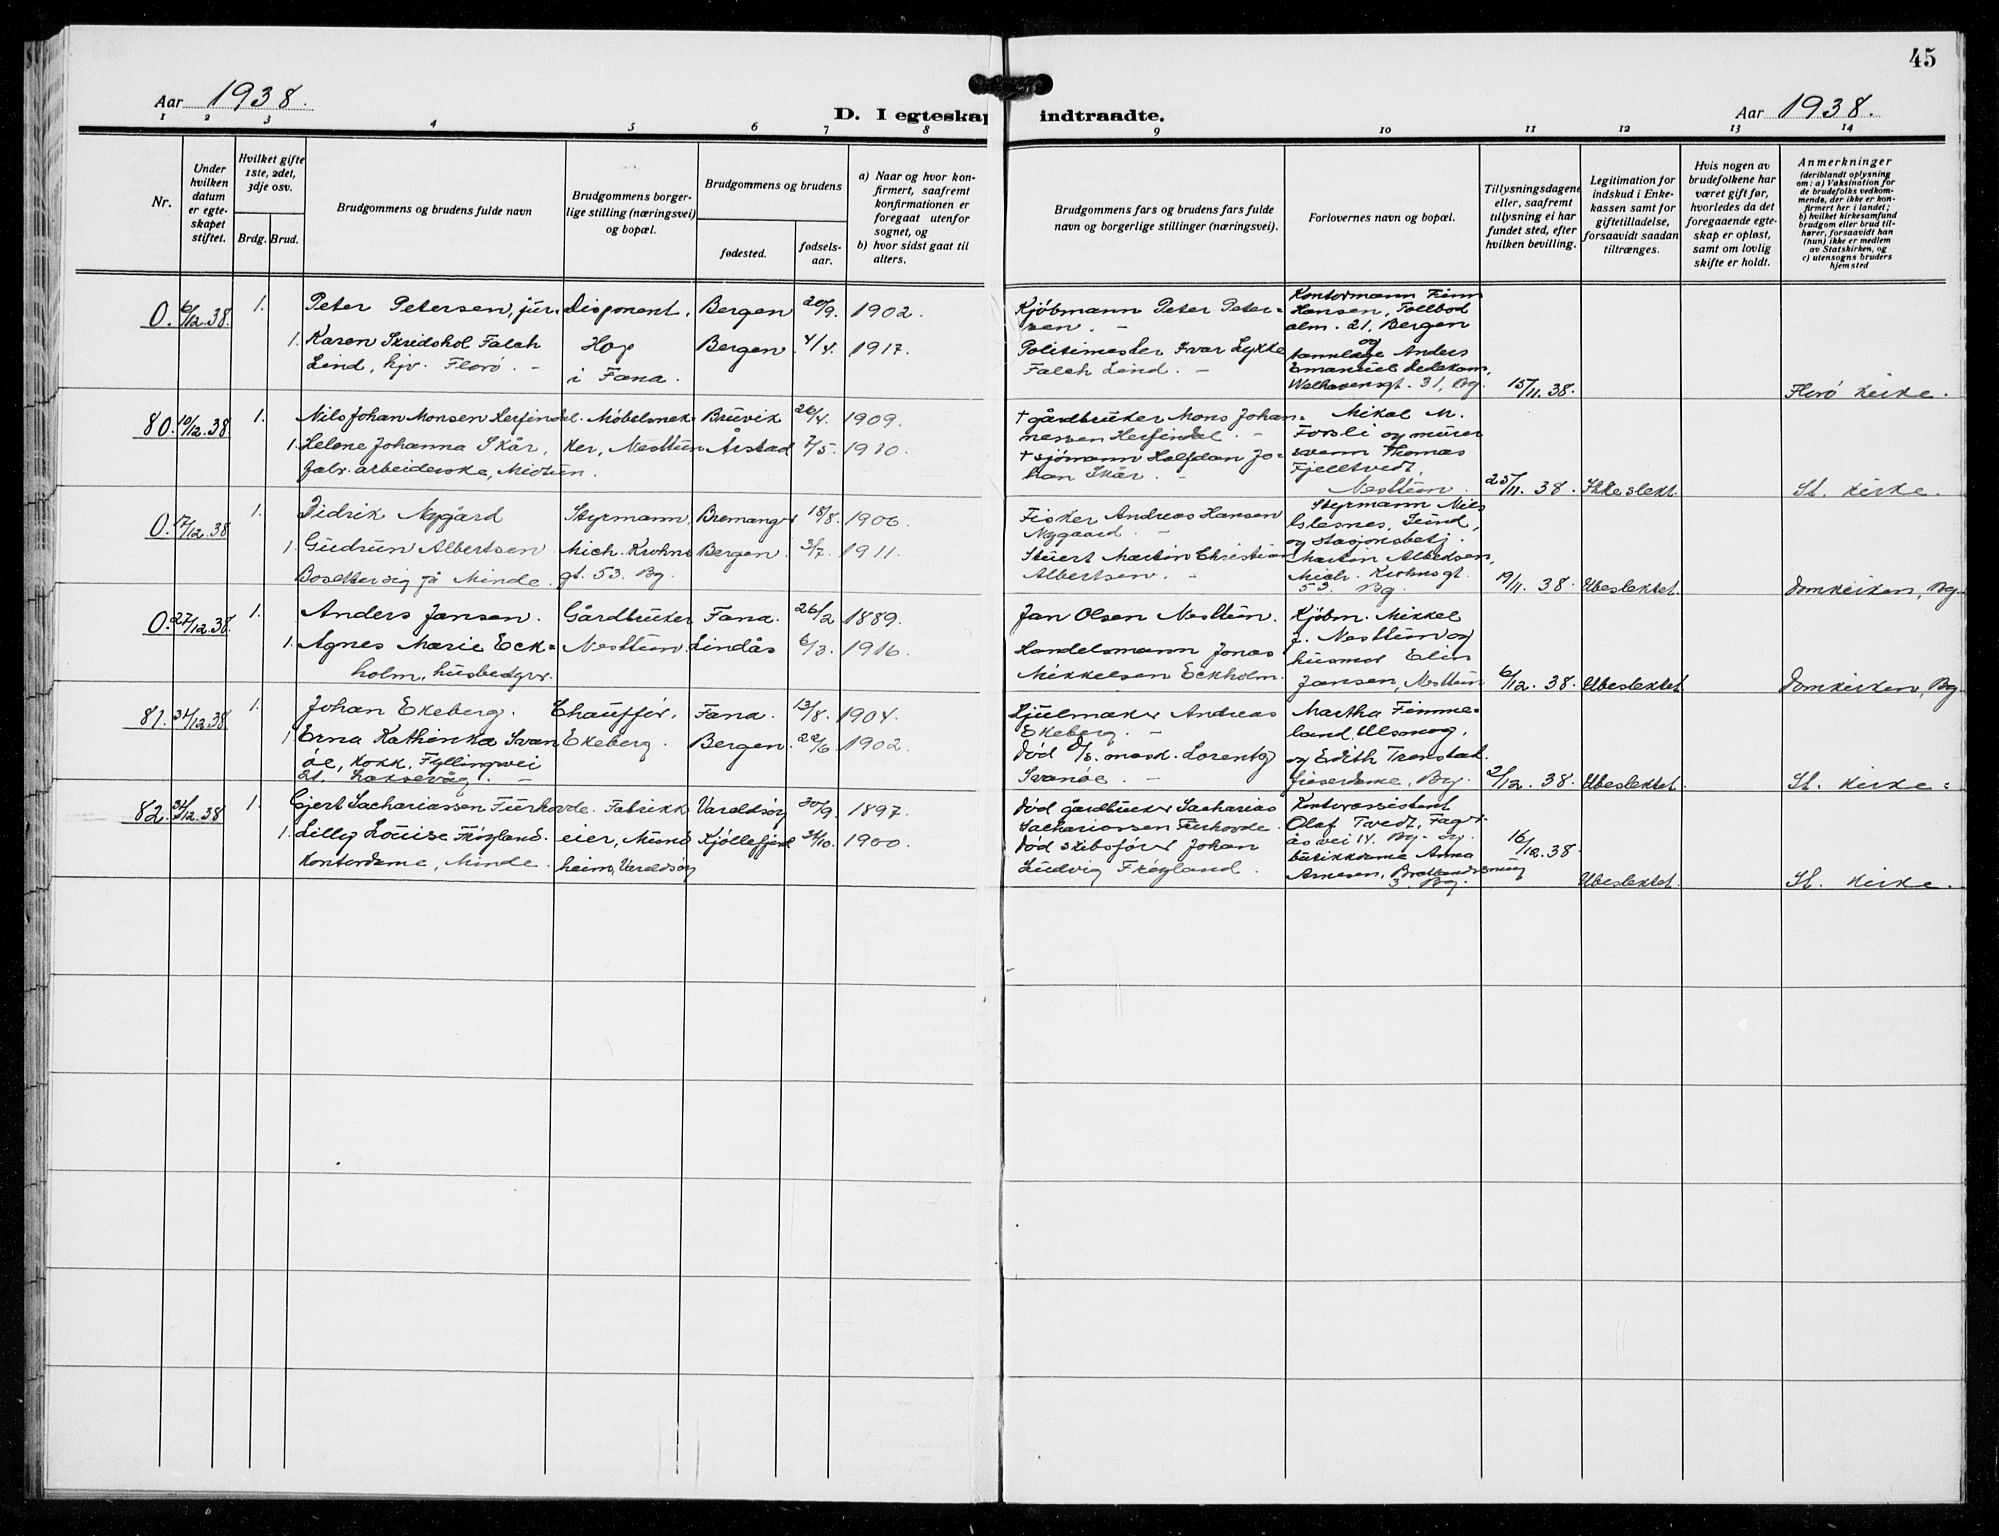 45
Aar 1938.
D. I egteskap indtraadte.
Aar 1938.
1 2 3 4 5 6 7 8 9 10 11 12 13 14
Nr.
Under hvilken datum er egteskapet stiftet.
Hvilket gifte 1ste, 2det, 3dje osv.
Brdg. Brud.
Brudgommens og brudens fulde navn
Brudgommens borgerlige stilling (næringsvei) og bopæl.
Brudgommens og brudens
fødested.
fødselsaar.
a) Naar og hvor konfirmert, saafremt konfirmationen er foregaat utenfor sognet, og
b) hvor sidst gaat til alters.
Brudgommens fars og brudens fars fulde navn og borgerlige stillinger (næringsvei).
Forlovernes navn og bopæl.
Tillysningsdagene eller, saafremt tillysning ei har fundet sted, efter hvilken bevilling.
Legitimation for indskud i Enkekassen samt for giftetilladelse, forsaavidt saadan tiltrænges.
Hvis nogen av brudefolkene har været gift før, hvorledes da det foregaaende egteskap er opløst, samt om lovlig skifte er holdt.
Anmerkninger
(deriblandt oplysning om: a) Vaksination for de brudefolks vedkommende, der ikke er konfirmert her i landet; b) hvilket kirkesamfund brudgom eller brud tilhører, forsaavidt han (hun) ikke er medlem av Statskirken, og c) utensogns bruders hjemsted
0. 6/12.38. 1. Peter Petersen, jur. Disponent, Bergen 20/9. 1902.
1. Karen Skridshol Falch Hop Bergen 4/4. 1917.
Lind, hjv. Florø. - i Fana.
Kjøbmann Peter Petersen. -
Politimester Ivar Lykke
Falch Lind. -
Kontormann Finn
Hansen, Tollbod
alm. 21, Bergen
og
tannlæge Anders
Emanuel
Welhavensgt. 31, Bg.
15/11.38.
Florø kirke.
80. 10/12.38 1. Nils Johan Monsen Herfindal. Møbelsnek= Bruvik 26/4. 1909.
1. Helene Johanna Skår, ker, Nesttun Årstad 7/5. 1910.
fabr. arbeiderske, Midtun.
† gårdbruker Mons Johan=
nessen Herfindal. -
† sjømann Halfdan Jo=
han Skår. -
Mikal M.
Forsli og murer
svenn Thomas
Fjelltvedt,
Nesttun.
25/11.38. Ikke slekt.
St. kirke.
0. 17/12.38 1. Didrik Nygård Styrmann, Bremanger 18/8. 1906.
1. Gudrun Albertsen Mich. Krohns Bergen. 3/7. 1911.
Bosetter sig på Minde. gt. 53. Bg.
Fisker Andreas Hansen
Nygaard. -
Stuert Martin Christian
Albertsen. -
Styrmann Nils
Lund,
og stasjonsbetj.
Martin Albertsen,
Mich. Krohnsgt.
53. Bg.
19/11.38. Ubeslektet.
Domkirken, Bg.
0. 27/12.38. 1. Anders Jansen. Gårdbruker Fana. 26/2 1889.
1. Agnes Marie Eck= Nesttun. Lindås 6/3. 1916.
holm, husbedgvr.
Jan Olsen Nesttun.
Handelsmann Jonas
Mikkelsen Eckholm.
Kjøbm. Mikkel
J. Nesttun og
husmor Elin
Jansen, Nesttun
6/12.38. Ubeslektet
Domkirken, Bg.
81. 31/12.38. 1. Johan Ekeberg. Chauffør, Fana. 13/8. 1904.
1. Erna Kathinka Svan Ekeberg. Bergen. 22/6. 1902.
øe, kokk, Fyllingsvei
21. Laksevåg. -
Hjulmaker Andreas
Ekeberg. -
Død mask. Lorentz
Svanøe. -
Martha Timme=
land, Ulsmog,
og Edith Tronstad
friserdame, Bg.
2/12.38. Ubeslektet.
St. kirke=
82. 31/12.38 1. Gjert Sachariassen Furhovde. Fabrikk Varaldsøy 30/9. 1897.
1. Lilly Louise Frøyland. eier, Mund Kjøllefjord 24/10. 1900.
Kontordame, Minde. heim, Varaldsøy
Død gårdbruker Sacharias
Sachariassen Furhovde.
Død skibsfører Johan
Ludvig Frøyland.
Kontorassistent
Olaf Tvedt, Fager
åsvei 14. Bg. og
butikkdame Anna
Arnesen,
3. Bg.
16/12.38.
Ubeslektet.
St. kirke.